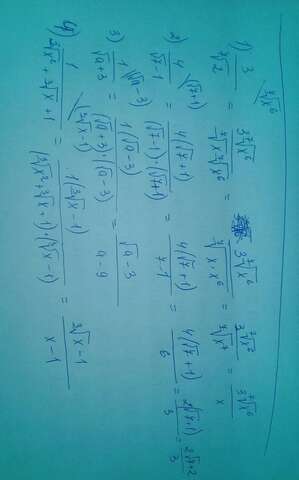 1) 3 / ⁷√x = 3 ⁷√x⁶ / ⁷√x ⁷√x⁶ = 3 ⁷√x⁶ / ⁷√x · x⁶ = 3 ⁷√x⁶ / ⁷√x⁷ = 3 ⁷√x⁶ / x
2) 4 / √7-1 = 4(√7+1) / (√7-1)·(√7+1) = 4(√7+1) / 7-1 = 4(√7+1) / 6 = 2(√7+1) / 3 = 2√7+2 / 3
3) 1 / √a+3 = 1(√a-3) / (√a+3)·(√a-3) = √a-3 / a-9
4) 1 / ³√x² + ³√x + 1 = 1(³√x-1) / (³√x²+³√x+1)·(³√x-1) = ³√x-1 / x-1